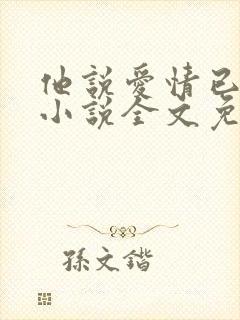 他說愛情已
小說全文免
孫文鍇